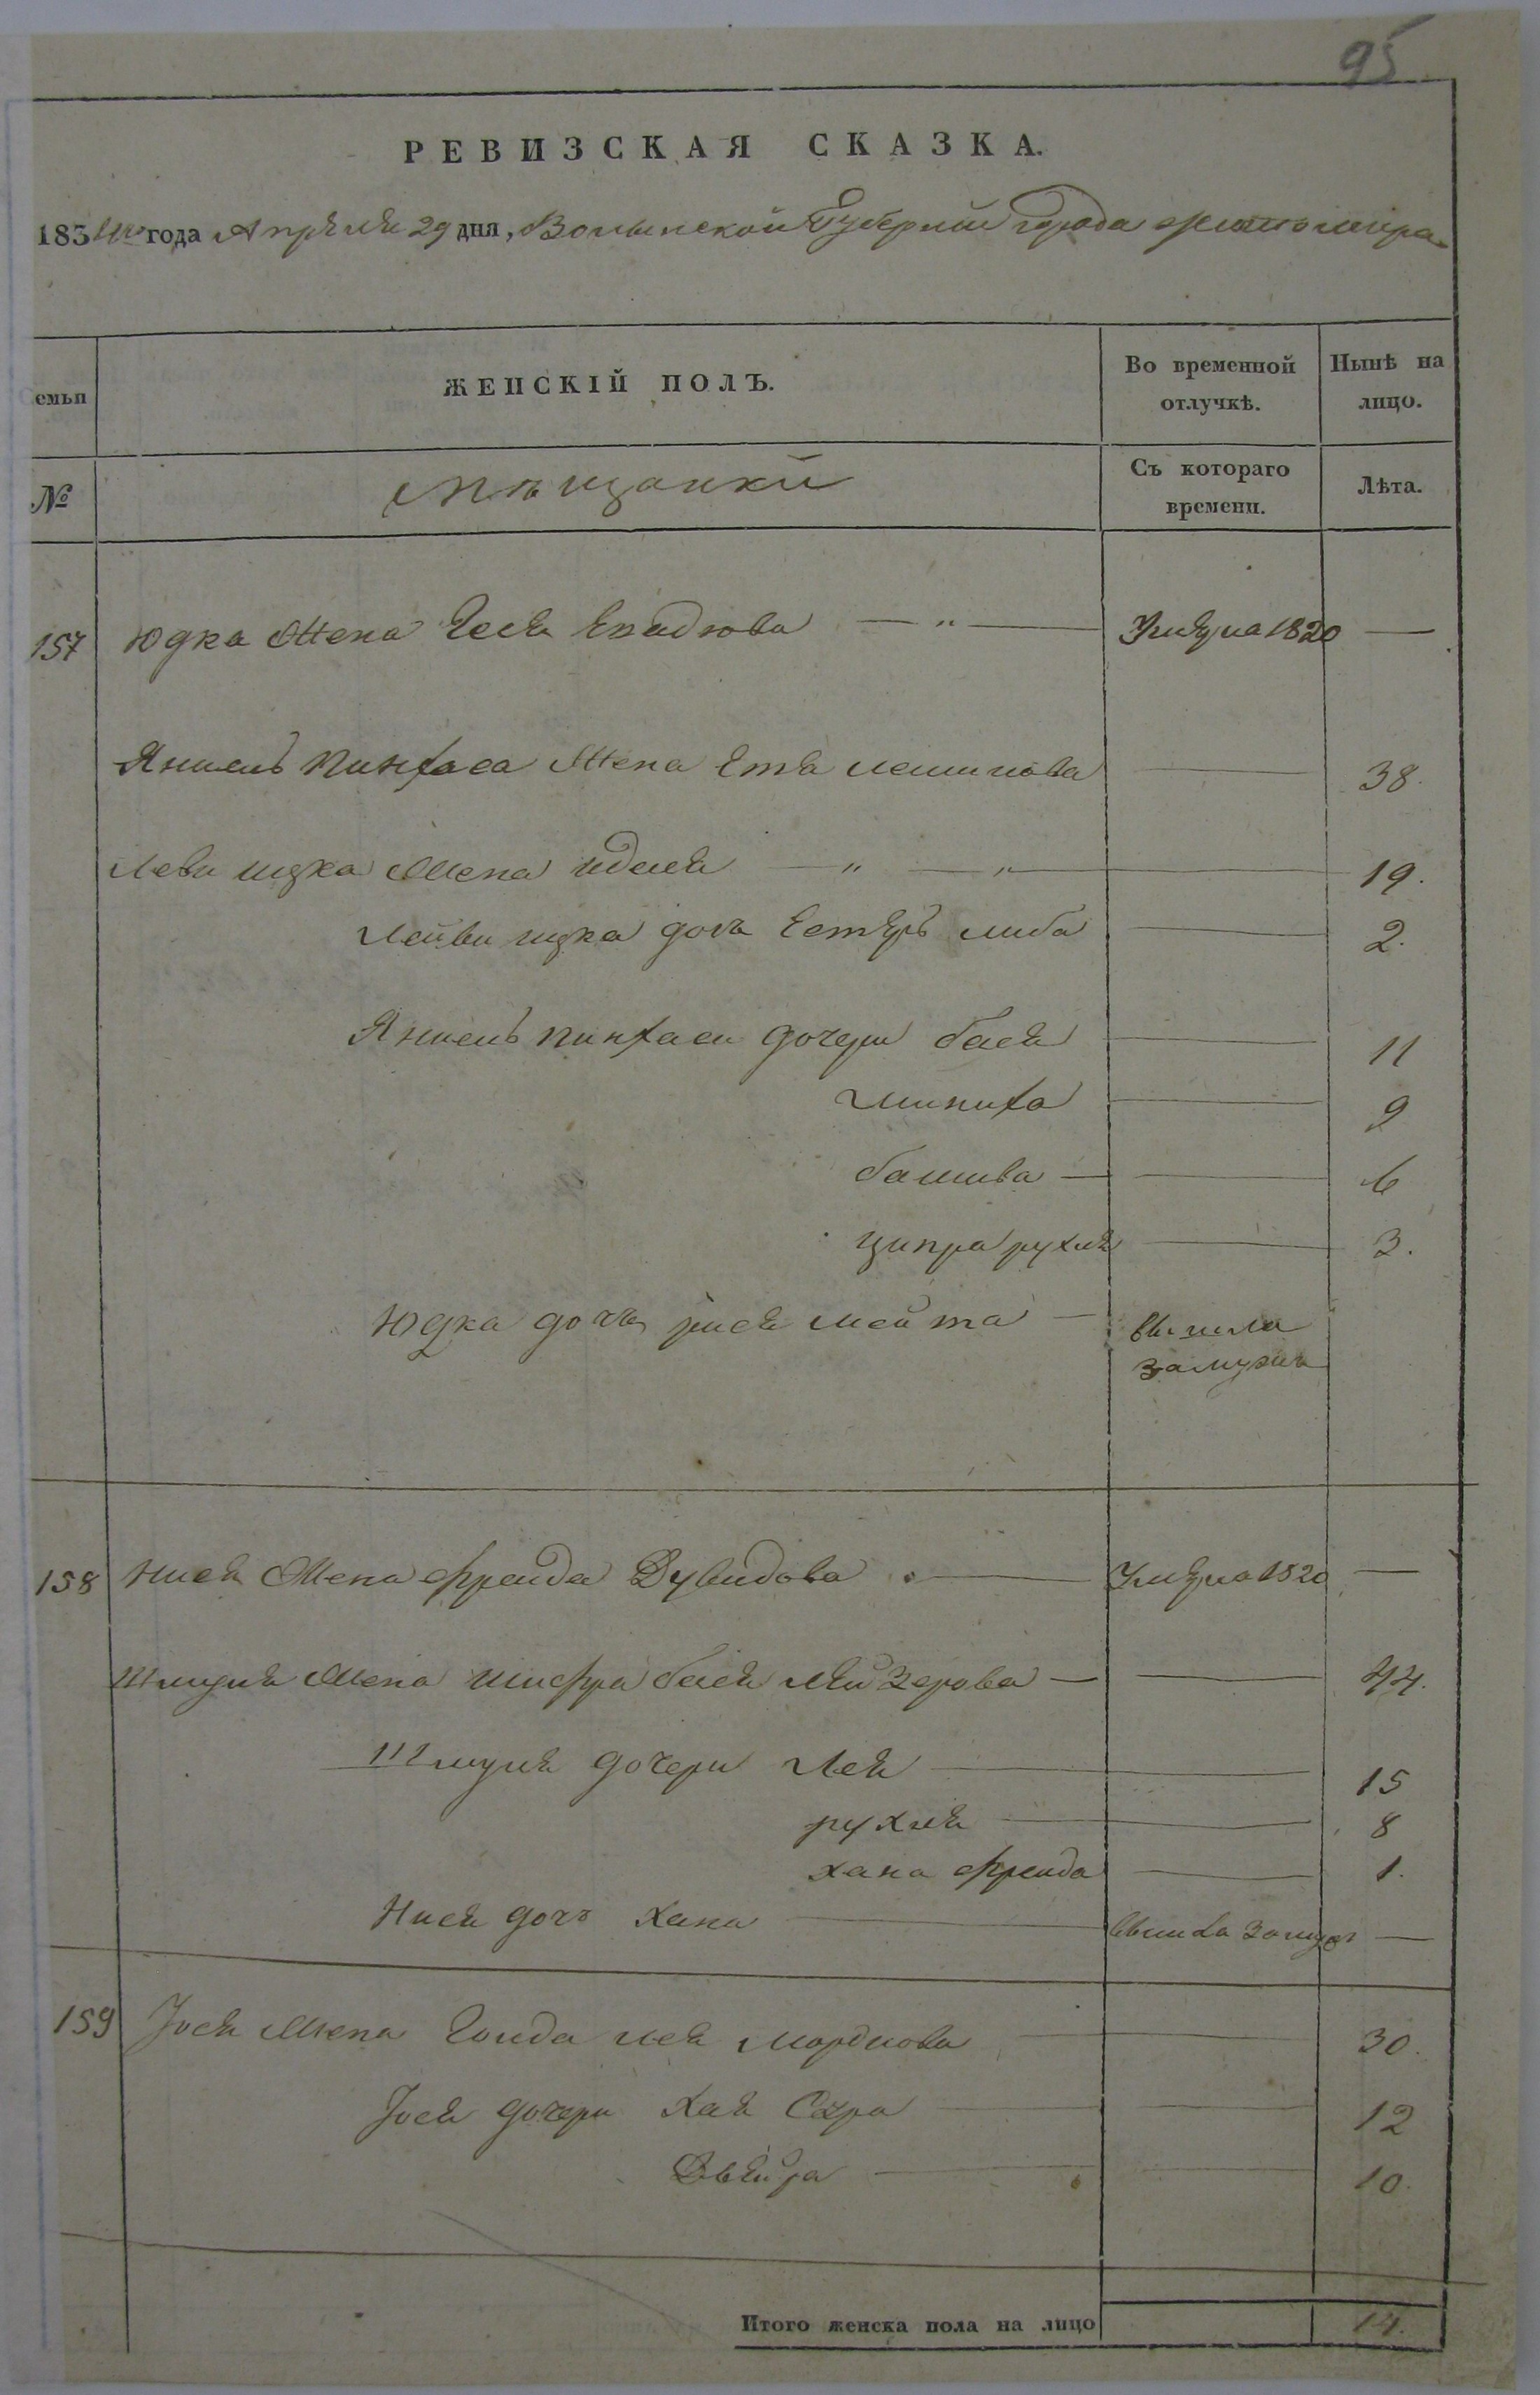 95
РЕВИЗСКАЯ СКАЗКА.
1834го года Апреля 29 дня, Волынской Губернии города Житомира
Семьи
ЖЕНСКІЙ ПОЛЪ.
Во временной отлучкѣ.
Нынѣ на лицо.
№
Мѣщанки
Съ котораго времени.
Лѣта.
157 Юдка Жена Еся — " — Умерла 1820 —
Янкель Пинхаса Жена Етя — 38.
Леви ицка Жена — " — " — 19.
Лейви ицка дочь Естеръ либа — 2.
Янкель пинхаси дочери бася — 11
— 9
башива — 6
ципра рухля — 3.
Юдка дочь — вышла замужъ
158 Нися Жена фрейда Дувидова — Умерла 1820 —
Шмуля Жена шифра бася Лейзерова — 44.
Шмуля дочери Лея — 15
рухля — 8
хана фрейда — 1.
Нися дочь Хана — вышла замуж —
159 Јося Жена Голда лея Мордкова — 30.
Јося дочери Хая Сура — 12
Двейра — 10.
Итого женска пола на лицо 14.